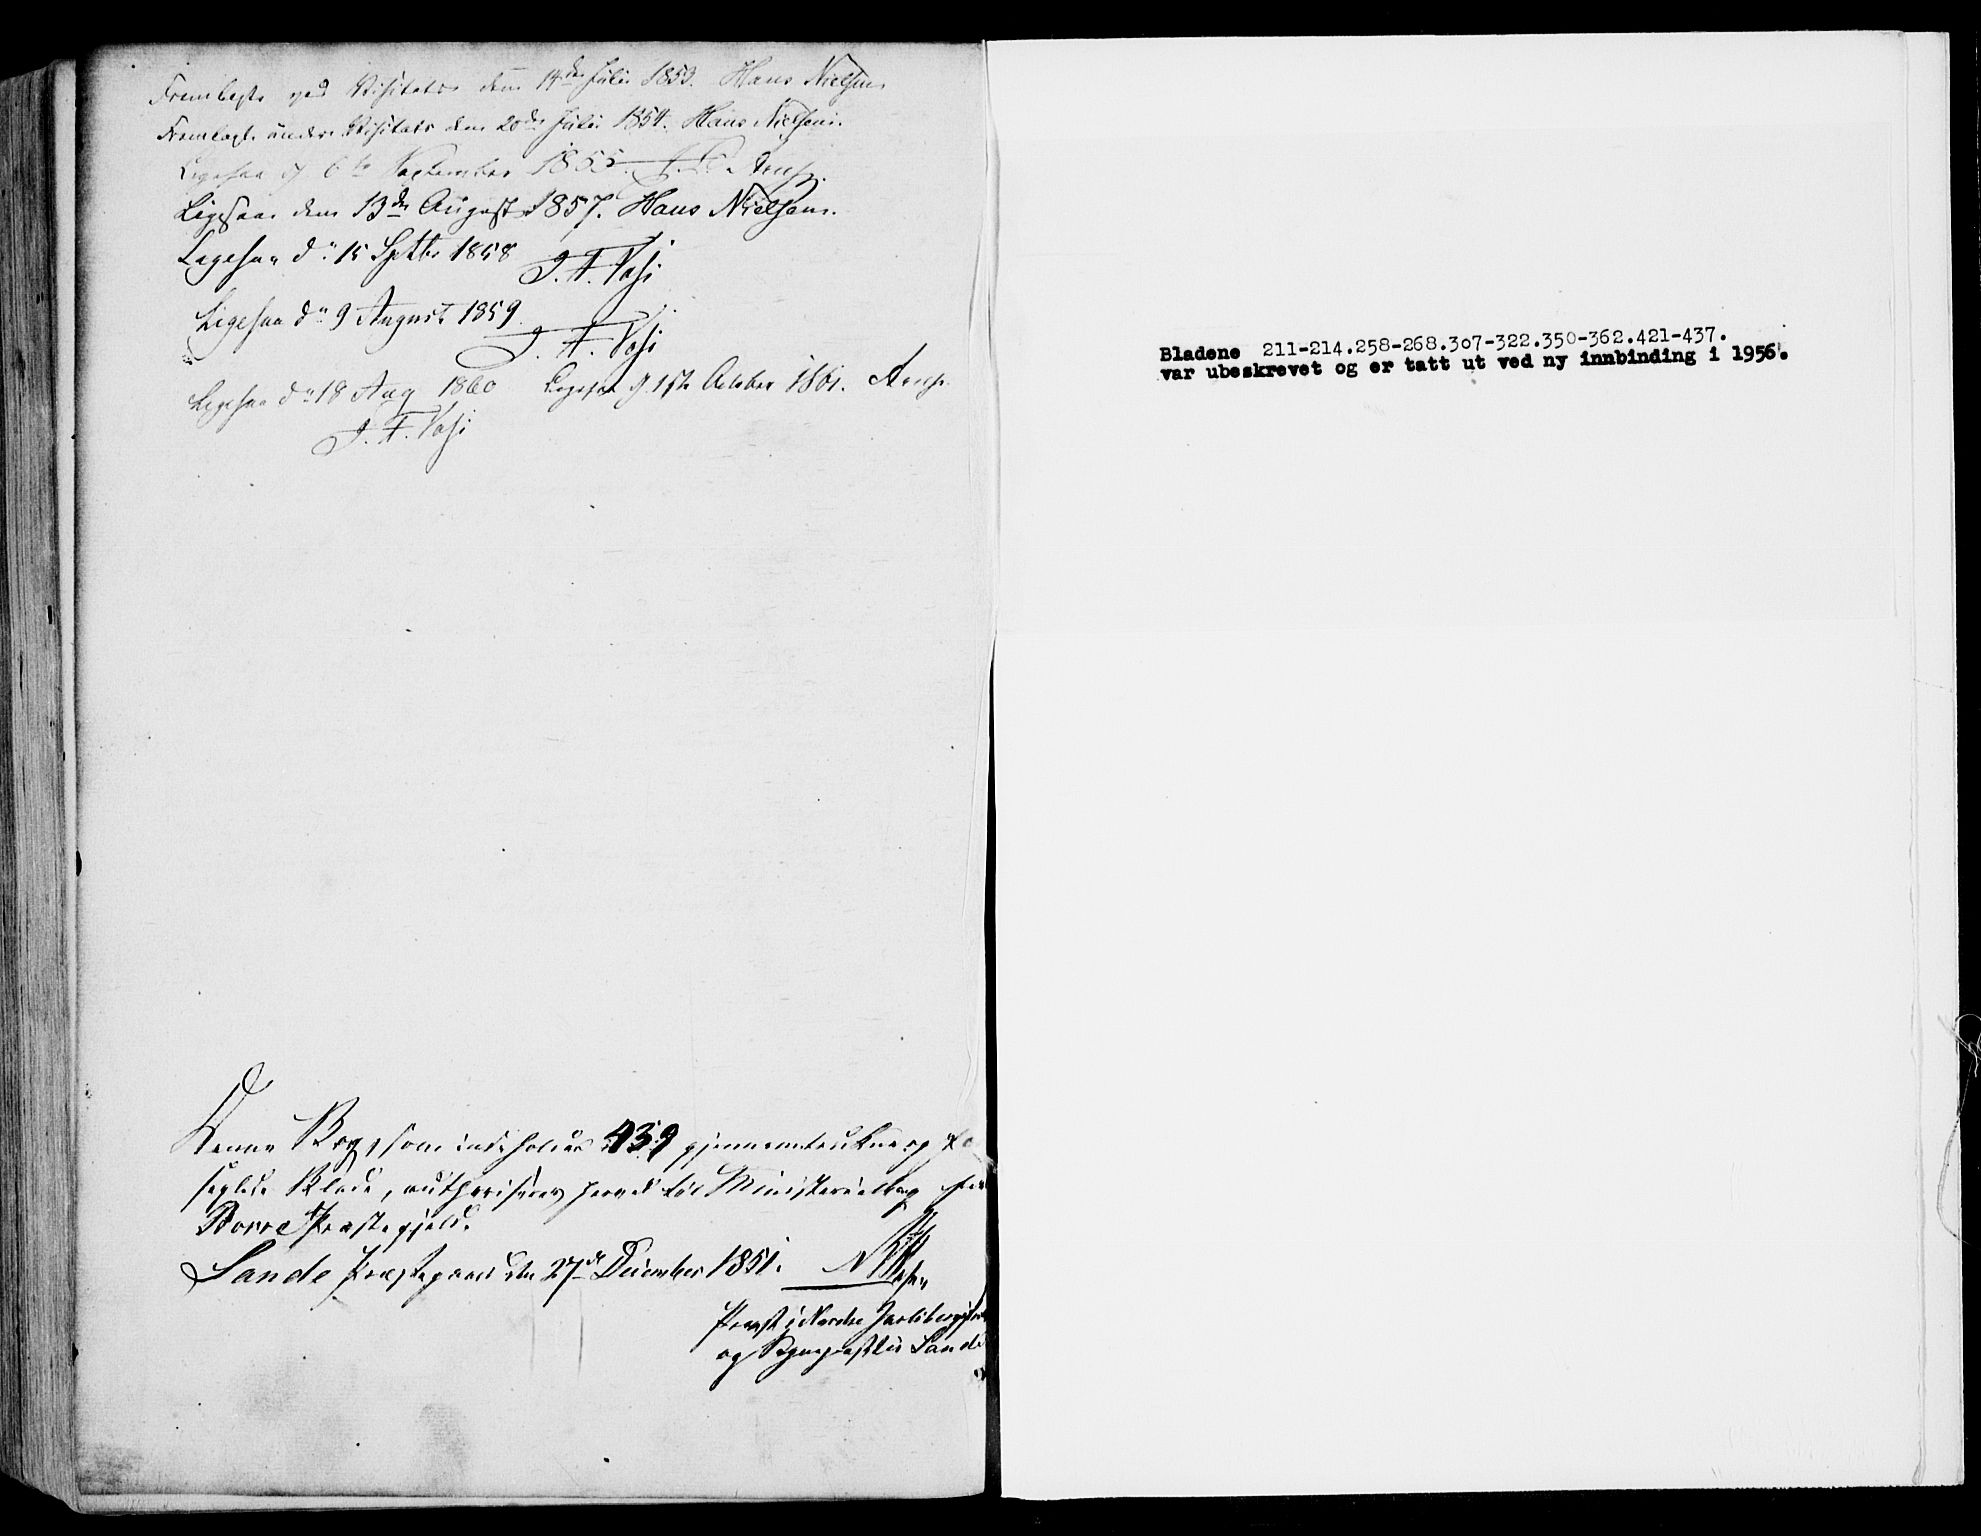 Fremlagte ved Visitats den 14de Juli 1853. Hans Nielsen
Fremlagt under Visitats den 20de Juli 1854. Hans Nielsen.
Ligesaa d 6te September 1855. Arup.
Ligesaa den 13de August 1857. Hans Nielsen.
Ligesaa dn 15 Septbr 1858
J. A.
Ligesaa dn 9 August 1859
J. A.
Ligesaa dn 18 Aug 1860 Ligesaa d. 1ste October 1861. Arup.
J. A.
Denne Bog, som indeholder 439 gjennemtrukne og
seglede Blade, authoriseres herved til Ministerialbog for
Borre Præstegjeld.
Sande Præstegaard den 27de December 1851.
Provst i Nordre Jarlsbergs
og Sogneprest til Sande
Bladene 211-214.258-268.307-322.350-362.421-437.
var ubeskrevet og er tatt ut ved ny innbinding i 1956.